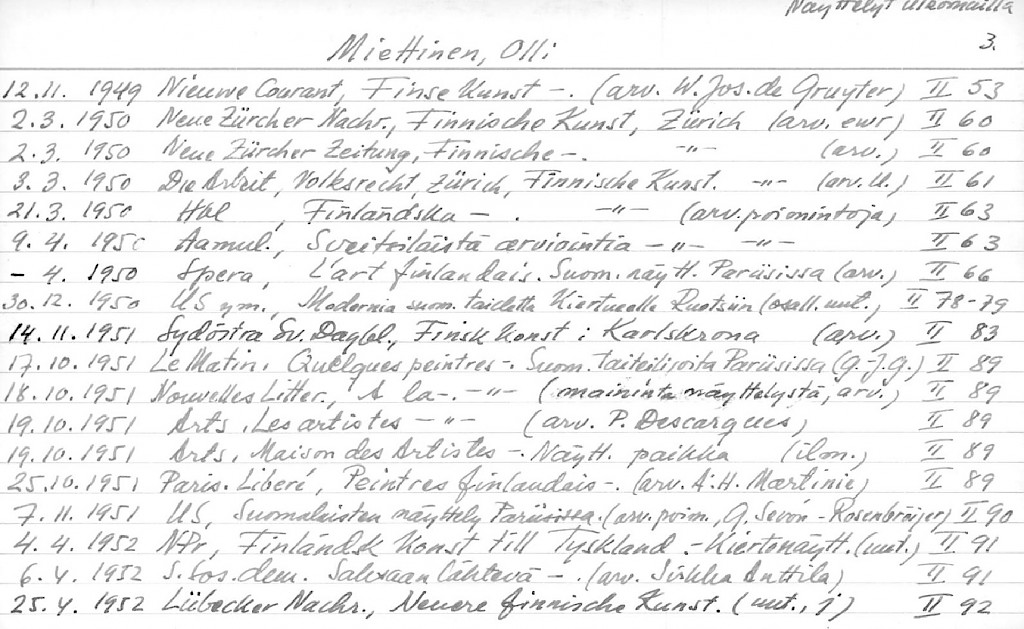 Näyttelyt ulkomailla
3.
Miettinen, Olli
12.11. 1949 Nieuwe Courant, Finse Kunst -. (arv. W. Jos. de Gruyter) II 53
2.3. 1950 Neue Zürcher Nachr., Finnische Kunst, Zürich (arv. ewr) II 60
2.3. 1950 Neue Zürcher Zeitung, Finnische -. -"- (arv.) II 60
3.3. 1950 Die Arbeit, Volksrecht, Zürich, Finnische Kunst. -"- (arv. U.) II 61
21.3. 1950 Hbl, Finländska - . -"- (arv. poimintoja) II 63
9.4. 1950 Aamul., Sveitsiläistä arviointia -"- -"- II 63
- 4. 1950 Spera, L'art finlandais. Suom. näytt. Pariisissa (arv.) II 66
30.12. 1950 US ym., Modernia suom. taidetta Kiertueelle Ruotsiin (osall. uut.) II 78-79
14.11.1951 Sydöstra Sv. Dagbl., Finsk Konst i Karlskrona (arv.) II 83
17.10.1951 Le Matin, Quelques peintres -. Suom. taiteilijoita Pariisissa (G.-J.G.) II 89
18.10.1951 Nouvelles Litter., A la -. -"- (maininta näyttelystä, arv.) II 89
19.10.1951 Arts, Les artistes -"- (arv. P. Descargues) II 89
19.10.1951 Arts, Maison des Artistes -. Näytt. paikka (ilm.) II 89
25.10.1951 Paris. Liberé, Peintres finlandais -. (arv. A.H. Martinie) II 89
7.11.1951 US, Suomalaisten näyttely Pariisissa. (arv. poim., G. Sevón - Rosenbröijer) II 90
4.4.1952 NPr, Finländsk Konst till Tyskland. - Kiertonäytt. (uut.) II 91
6.4.1952 S. Sos. dem. Saksaan lähtevä -. (arv. Sirkka Anttila) II 91
25.4.1952 Lübecker Nachr., Neuere finnische Kunst. (uut., j) II 92